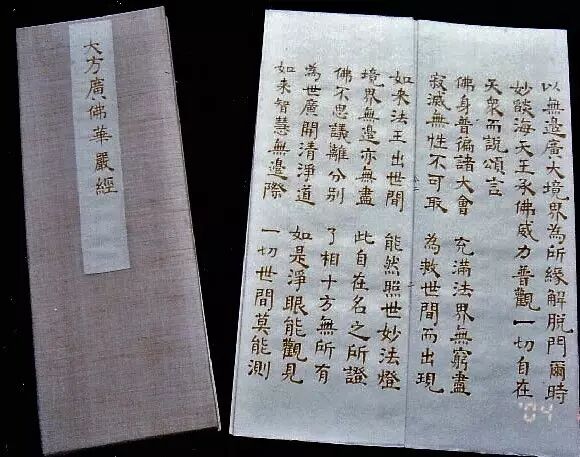 大方廣佛華嚴經
以無邊廣大境界為所緣解脫門爾時
妙燄海天王承佛威力普觀一切自在
天衆而說頌言
佛身普徧諸大會 充滿法界無窮盡
寂滅無性不可取 為救世間而出現
如來法王出世間 能然照世妙法燈
境界無邊亦無盡 此自在名之所證
佛不思議離分別 了相十方無所有
為世廣開清淨道 如是淨眼能觀見
如來智慧無邊際 一切世間莫能測
'04